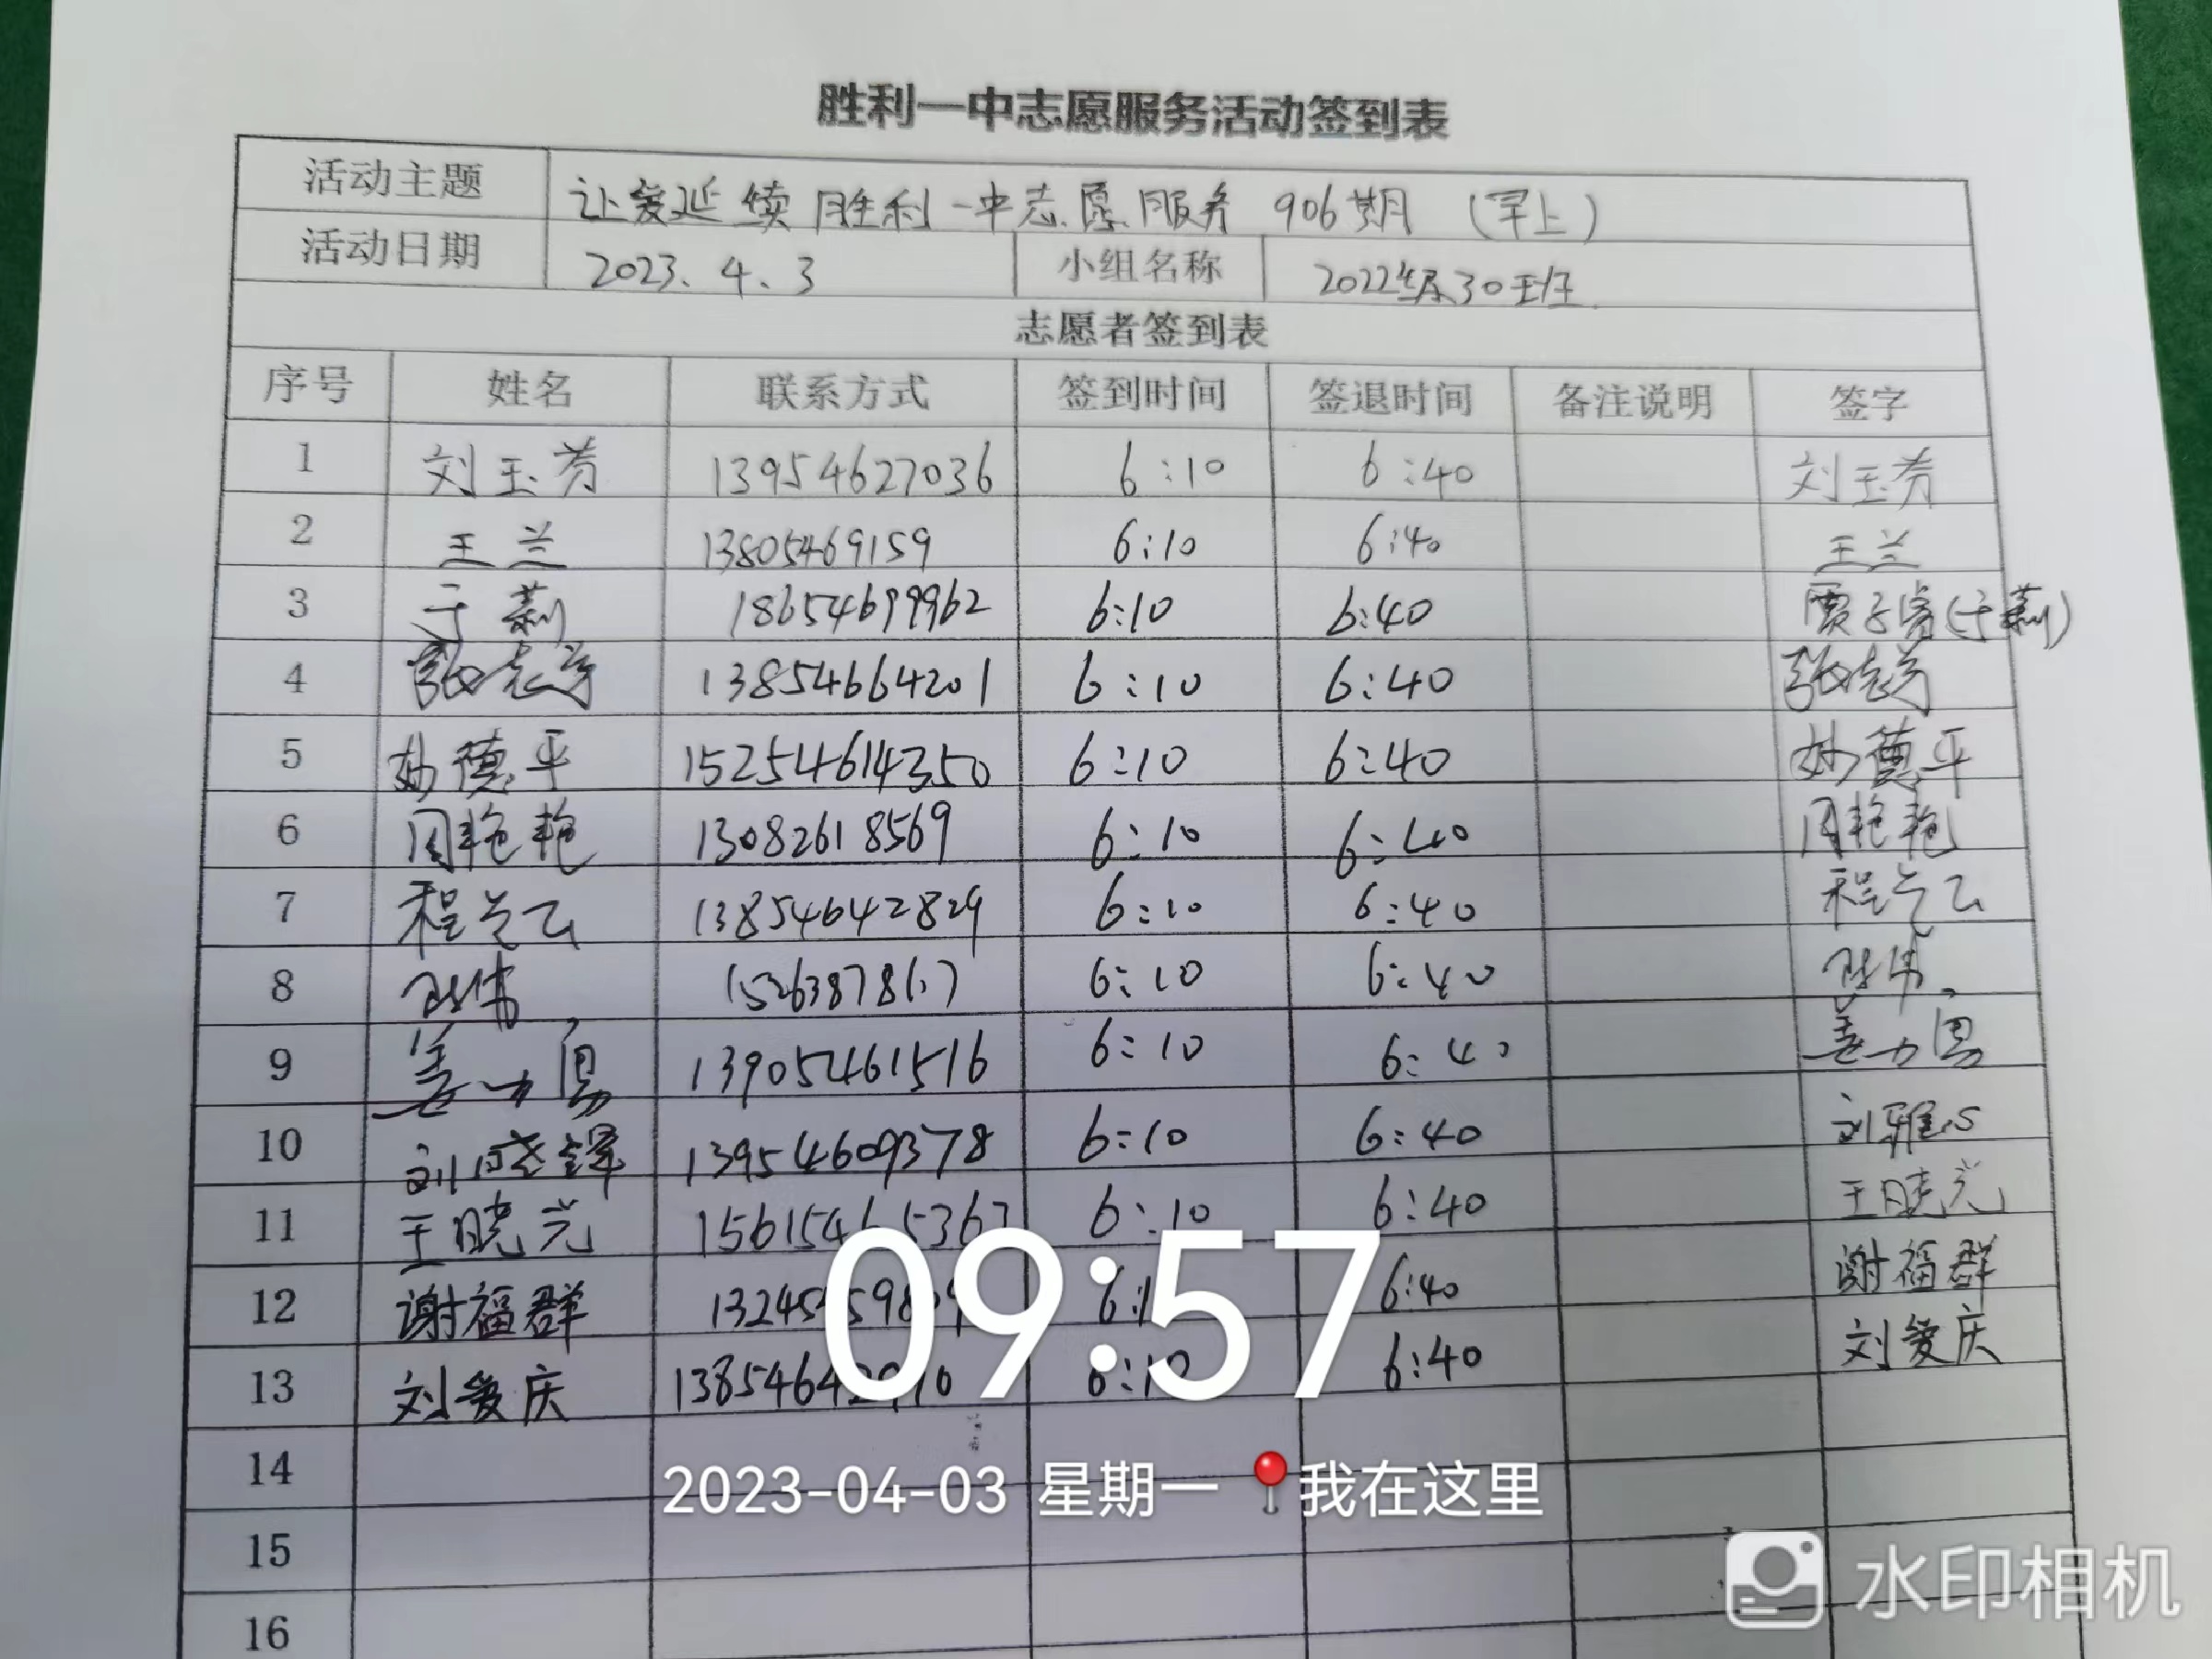 胜利一中志愿服务活动签到表
活动主题 让爱延续 胜利一中志愿服务 906期 (早上)
活动日期 2023.4.3 小组名称 2022级30班
志愿者签到表
序号 姓名 联系方式 签到时间 签退时间 备注说明 签字
1 刘玉芳 13954627036 6:10 6:40 刘玉芳
2 王兰 13805469159 6:10 6:40 王兰
3 于莉 18654699962 6:10 6:40 贾子睿(于莉)
4 13854664201 6:10 6:40
5 孙德平 15254614350 6:10 6:40 孙德平
6 周艳艳 13082618569 6:10 6:40 周艳艳
7 程兰 13854642829 6:10 6:40 程兰
8 6:10 6:40
9 13905461516 6:10 6:40
10 刘晓锋 13954609378 6:10 6:40 刘雅心
11 王晓光 6:10 6:40 王晓光
12 谢福群 6:40 谢福群
13 刘爱庆 6:10 6:40 刘爱庆
09:57
14
2023-04-03 星期一 我在这里
15
16
水印相机